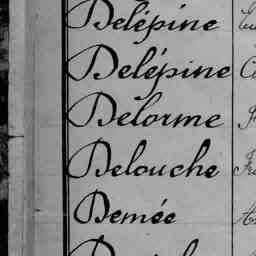 Delépine
Delépine
Delorme
Delouche
Demée